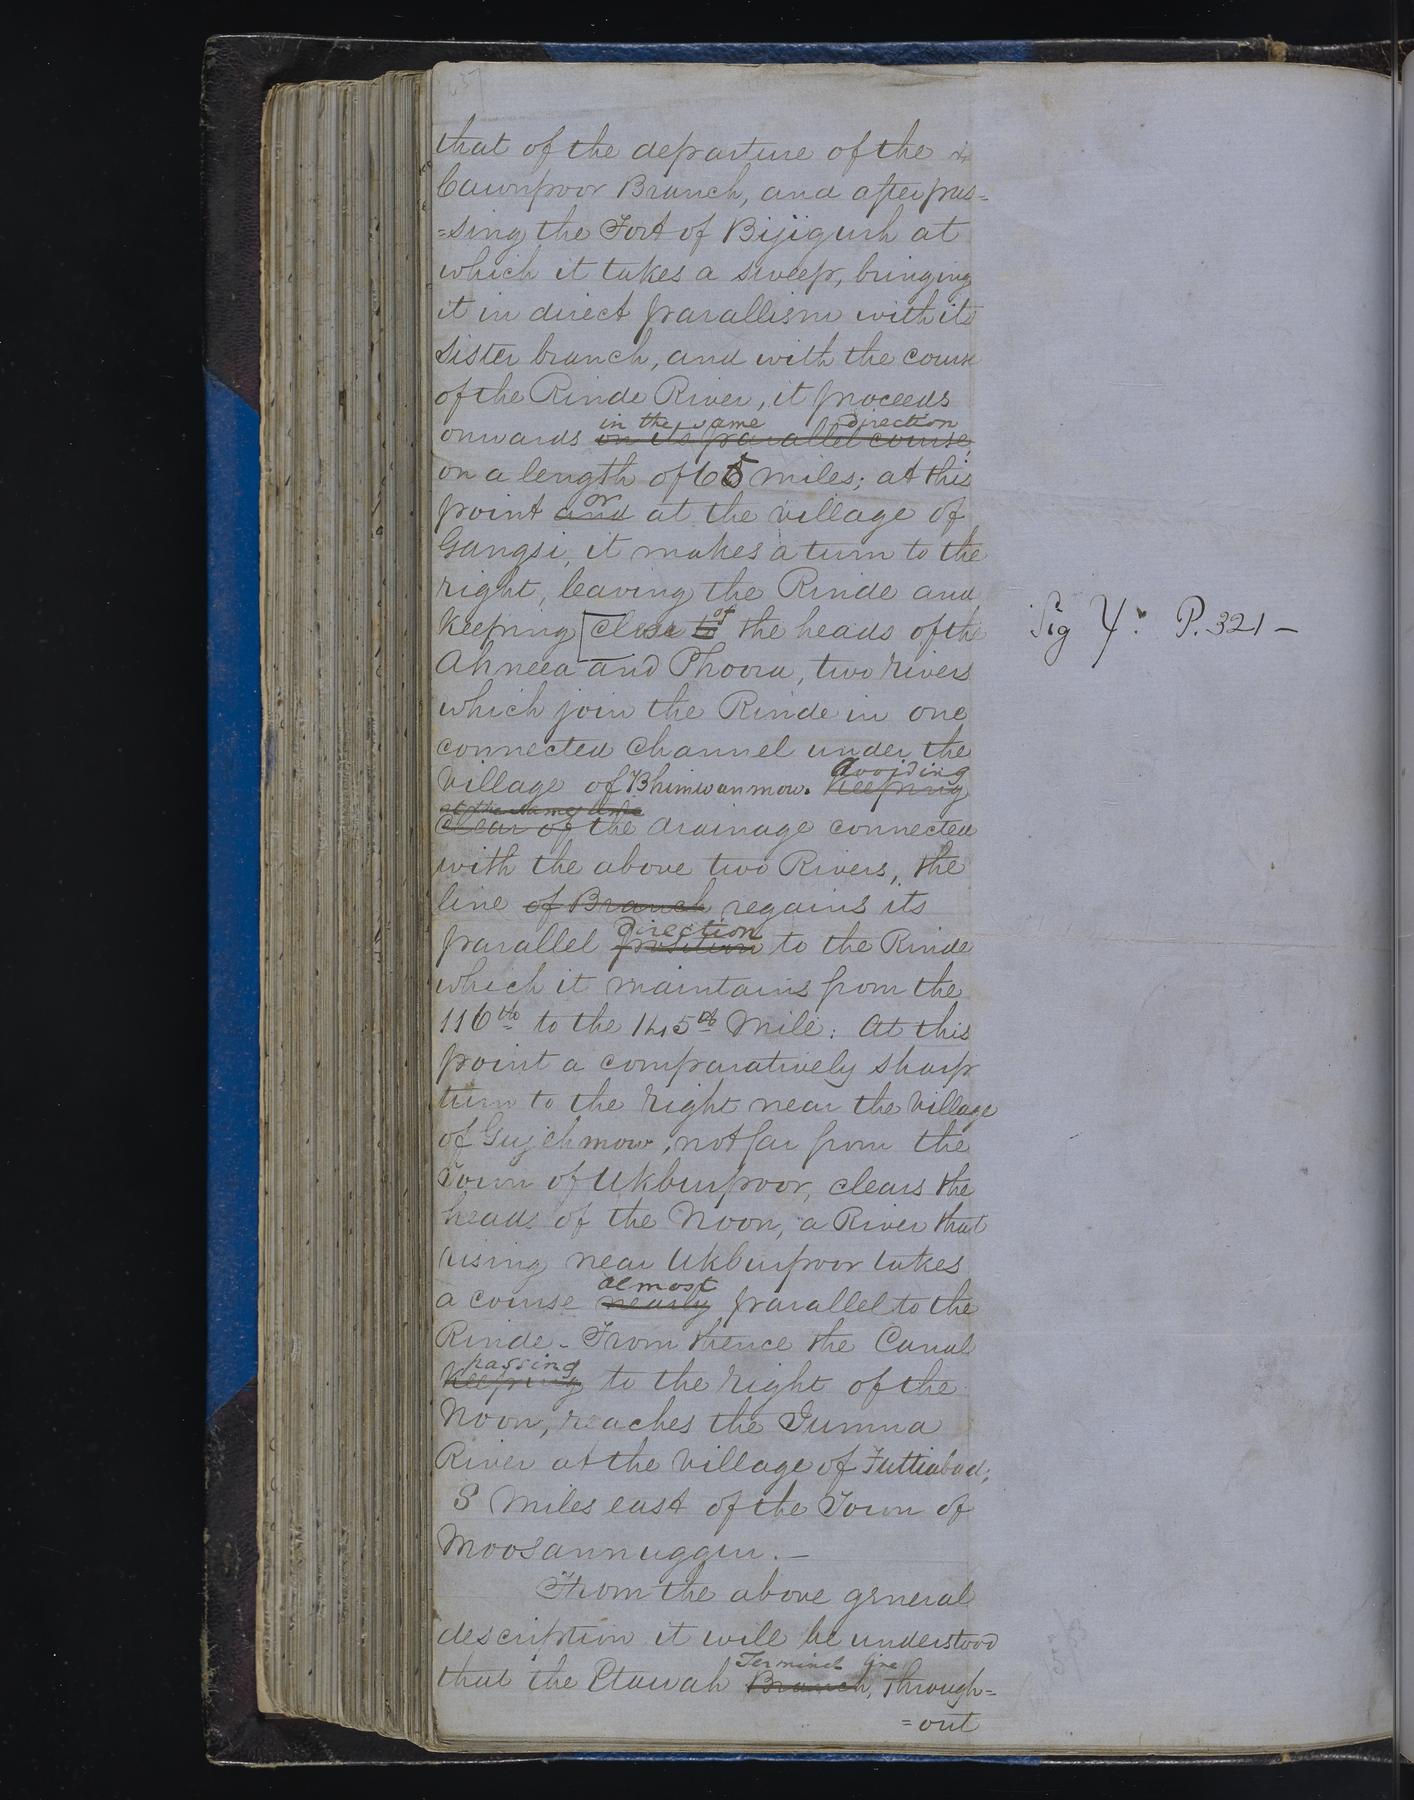 that of the departure of the
Cawnpoor Branch, and after pas=
=sing the Fort of Bijigurh at
which it takes a sweep, bringing
it in direct parallism with its
sister branch, and with the course
of the Rinde River, it proceeds
in the same direction
onwards on its parallel course,
on a length of 65 miles; at this
or
point and at the village of
Gangsi, it makes a turn to the
right, leaving the Rinde and
of
keeping [clear to the heads of the
Sig Y: P. 321 –
Ahneea and Phoora, two rivers
which join the Rinde in one
connected channel under the
avoiding
village of Bhimwanmow. keeping
at the same time
clear of the drainage connected
with the above two Rivers, the
line of Branch regains its
direction
parallel position to the Rinde
which it maintains from the
116th to the 145th Mile: At this
point a comparatively sharp
turn to the right near the village
of Gujehmow, not far from the
Town of Ukburpoor, clears the
heads of the Noon, a River that
rising near Ukburpoor takes
almost
a course nearly parallel to the
Rinde - From thence the Canal
passing
keeping to the right of the
Noon, reaches the Jumna
River at the village of Futtiabad;
3 Miles east of the Town of
Moosannuggur. –
From the above general
description it will be understood
Terminal line
that the Etawah Branch, through=
=out